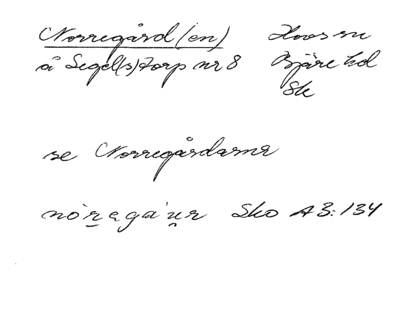 Norregård(en) Hovs sn
å Segel(s)torp nr 8 Bjäre hd
Sk
se Norregårdarna
Sko A3:134